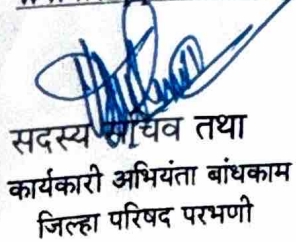 सदस्य सचिव तथा
कार्यकारी अभियंता बांधकाम
जिल्हा परिषद परभणी